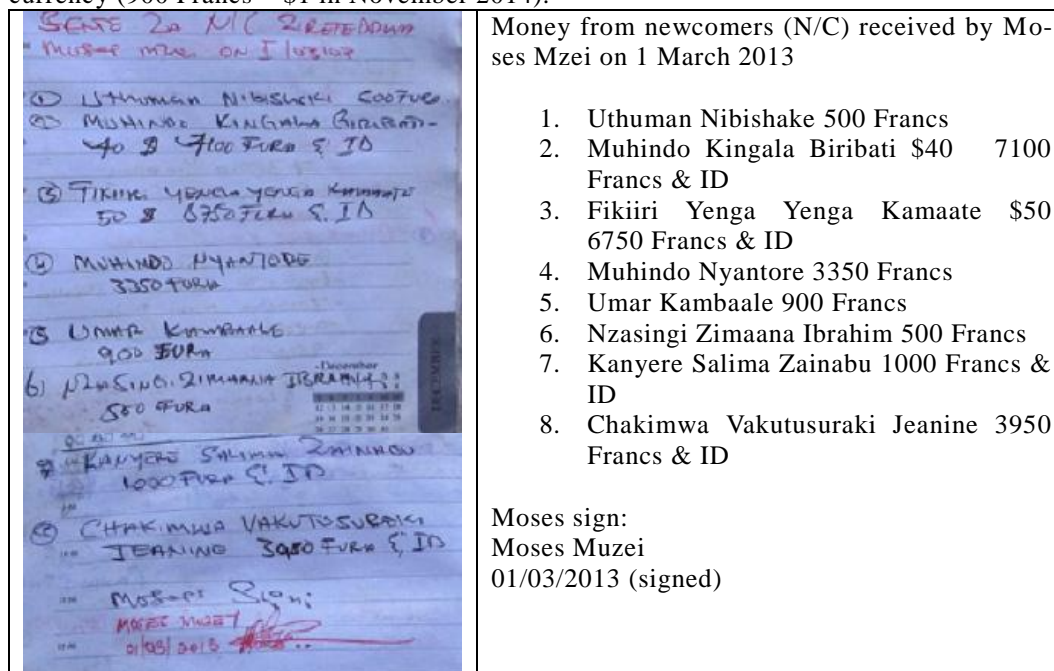 SENTE Za N/C
ON I/03/03
① Uthuman Nibisheki
② MUHINDO KINGALA
40 $ 7100 FURA & ID
③ YENGA YENGA
50 $ 6750 FURA & ID
④ MUHINDO NYANTORE
3350 FURA
5 UMAR KAMBAALE
900 FURA
6)
500 FURA
December
DECEMBER
KANYERE SALIMA ZAINABU
1000 FURA & ID
CHAKIMWA VAKUTUSURAKI
JEANINE 3950 FURA & ID
Sign:
MOSES MUZEY
01/03/2013
Money from newcomers (N/C) received by Mo-
ses Mzei on 1 March 2013
1. Uthuman Nibishake 500 Francs
2. Muhindo Kingala Biribati $40 7100
Francs & ID
3. Fikiiri Yenga Yenga Kamaate $50
6750 Francs & ID
4. Muhindo Nyantore 3350 Francs
5. Umar Kambaale 900 Francs
6. Nzasingi Zimaana Ibrahim 500 Francs
7. Kanyere Salima Zainabu 1000 Francs &
ID
8. Chakimwa Vakutusuraki Jeanine 3950
Francs & ID
Moses sign:
Moses Muzei
01/03/2013 (signed)